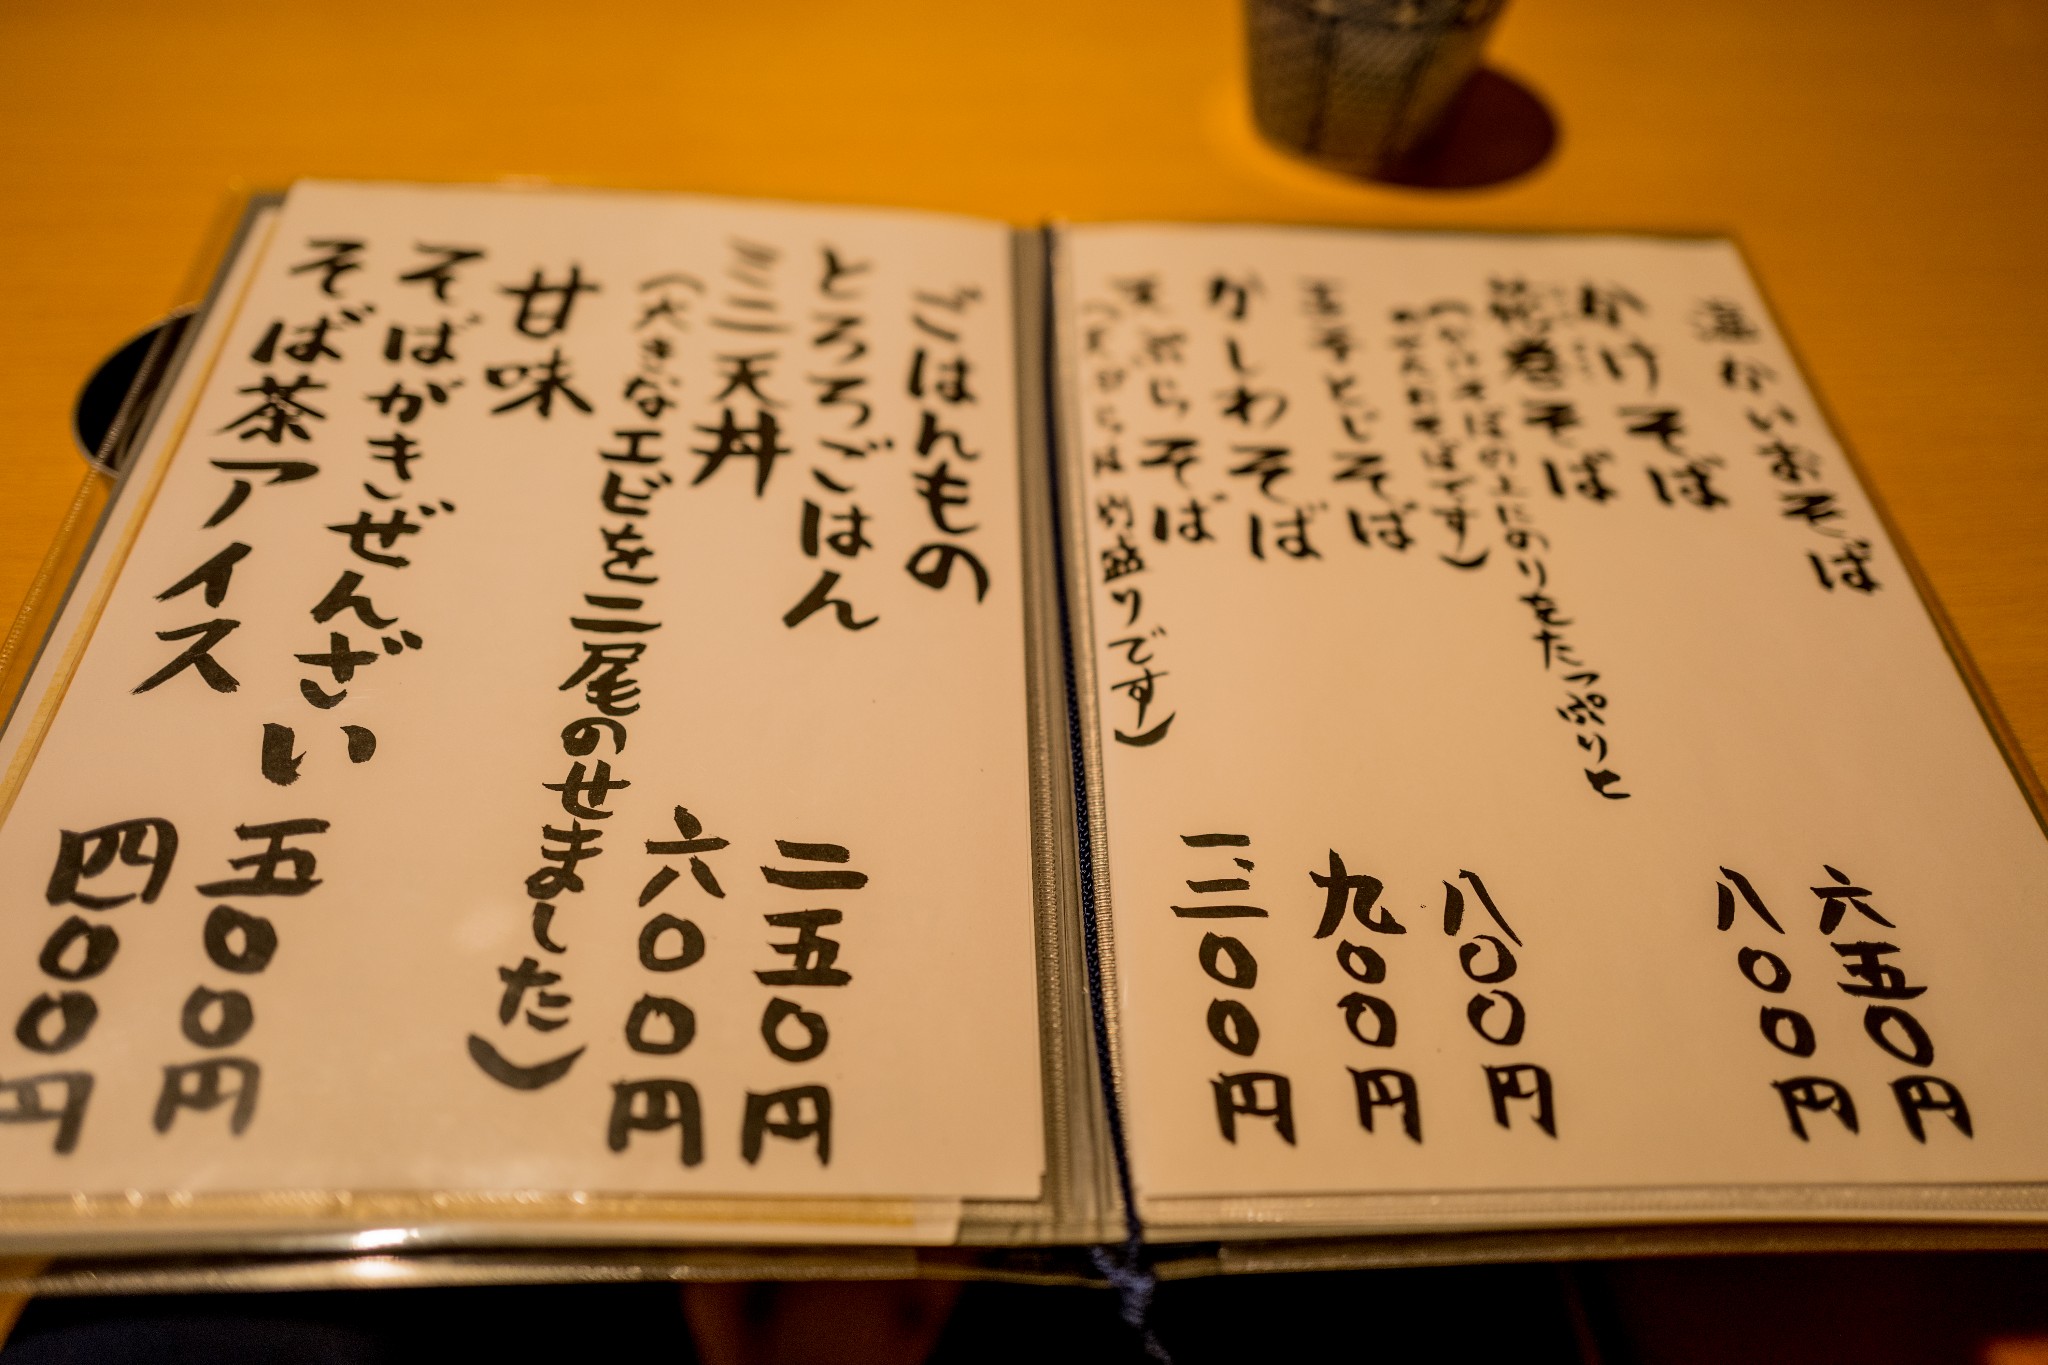 温かいおそば
かけそば 六五〇円
花巻そば 八〇〇円
(かけそばの上にのりをたっぷりと
のせたおそばです)
玉子とじそば 八〇〇円
かしわそば 九〇〇円
天ぷらそば 一、三〇〇円
(天ぷらは別盛りです)
ごはんもの
とろろごはん 二五〇円
ミニ天丼 六〇〇円
(大きなエビを二尾のせました)
甘味
そばがきぜんざい 五〇〇円
そば茶アイス 四〇〇円